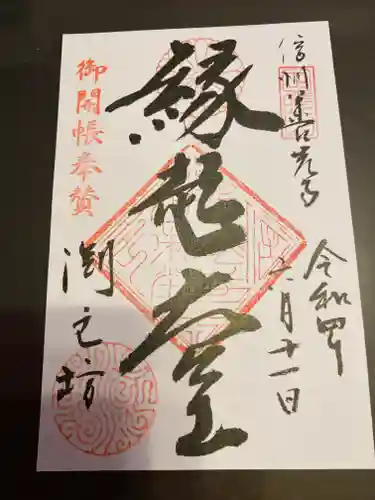 信州善光寺
令和四年
六月十一日
縁起堂
御開帳奉賛
渕之坊